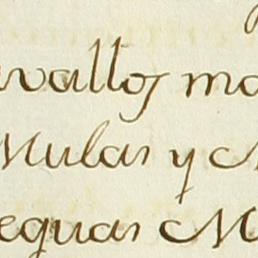 avallos ma
Mulas y M
eguas M